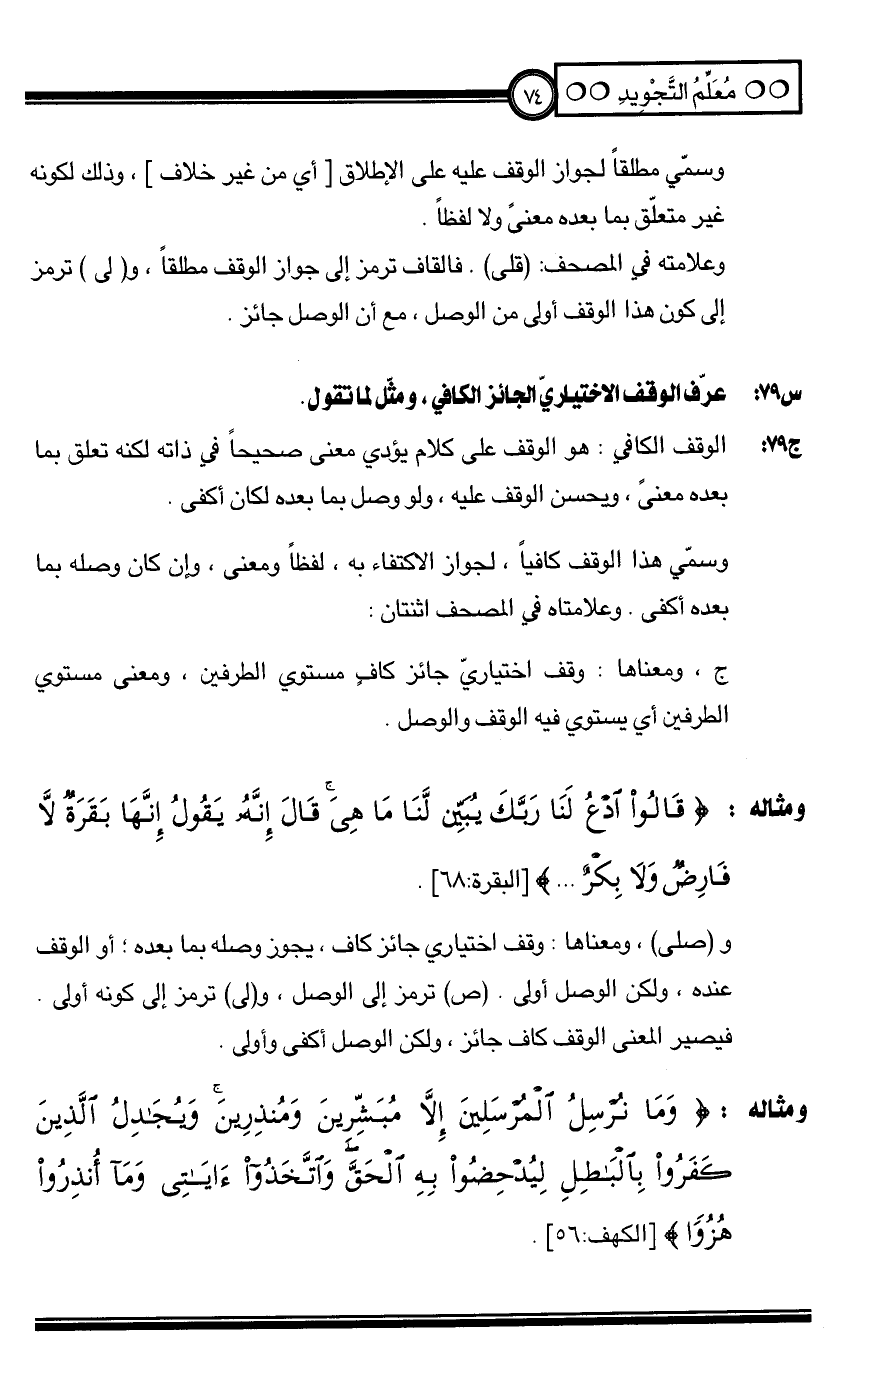 مُعَلِّمُ التَّجْوِيدِ ٧٤
وسمّي مطلقاً لجواز الوقف عليه على الإطلاق [ أي من غير خلاف ] ، وذلك لكونه
غير متعلّق بما بعده معنىً ولا لفظاً .
وعلامته في المصحف: (قلى) . فالقاف ترمز إلى جواز الوقف مطلقاً ، و( لى ) ترمز
إلى كون هذا الوقف أولى من الوصل ، مع أن الوصل جائز .
س٧٩: عرّف الوقف الاختياريّ الجائز الكافي ، ومثّل لما تقول .
ج٧٩: الوقف الكافي : هو الوقف على كلام يؤدي معنى صحيحاً في ذاته لكنه تعلق بما
بعده معنىً ، ويحسن الوقف عليه ، ولو وصل بما بعده لكان أكفى .
وسمّي هذا الوقف كافياً ، لجواز الاكتفاء به ، لفظاً ومعنى ، وإن كان وصله بما
بعده أكفى . وعلامتاه في المصحف اثنتان :
ج ، ومعناها : وقف اختياريّ جائز كافٍ مستوي الطرفين ، ومعنى مستوي
الطرفين أي يستوي فيه الوقف والوصل .
ومثاله : ﴿ قَالُواْ ٱدْعُ لَنَا رَبَّكَ يُبَيِّن لَّنَا مَا هِىَ ۚ قَالَ إِنَّهُۥ يَقُولُ إِنَّهَا بَقَرَةٌ لَّا
فَارِضٌ وَلَا بِكْرٌ ... ﴾ [البقرة:٦٨] .
و (صلى) ، ومعناها : وقف اختياري جائز كاف ، يجوز وصله بما بعده ؛ أو الوقف
عنده ، ولكن الوصل أولى . (ص) ترمز إلى الوصل ، و(لى) ترمز إلى كونه أولى .
فيصير المعنى الوقف كاف جائز ، ولكن الوصل أكفى وأولى .
ومثاله : ﴿ وَمَا نُرْسِلُ ٱلْمُرْسَلِينَ إِلَّا مُبَشِّرِينَ وَمُنذِرِينَ ۚ وَيُجَٰدِلُ ٱلَّذِينَ
كَفَرُواْ بِٱلْبَٰطِلِ لِيُدْحِضُواْ بِهِ ٱلْحَقَّ ۖ وَٱتَّخَذُوٓاْ ءَايَٰتِى وَمَآ أُنذِرُواْ
هُزُوًا ﴾ [الكهف:٥٦] .